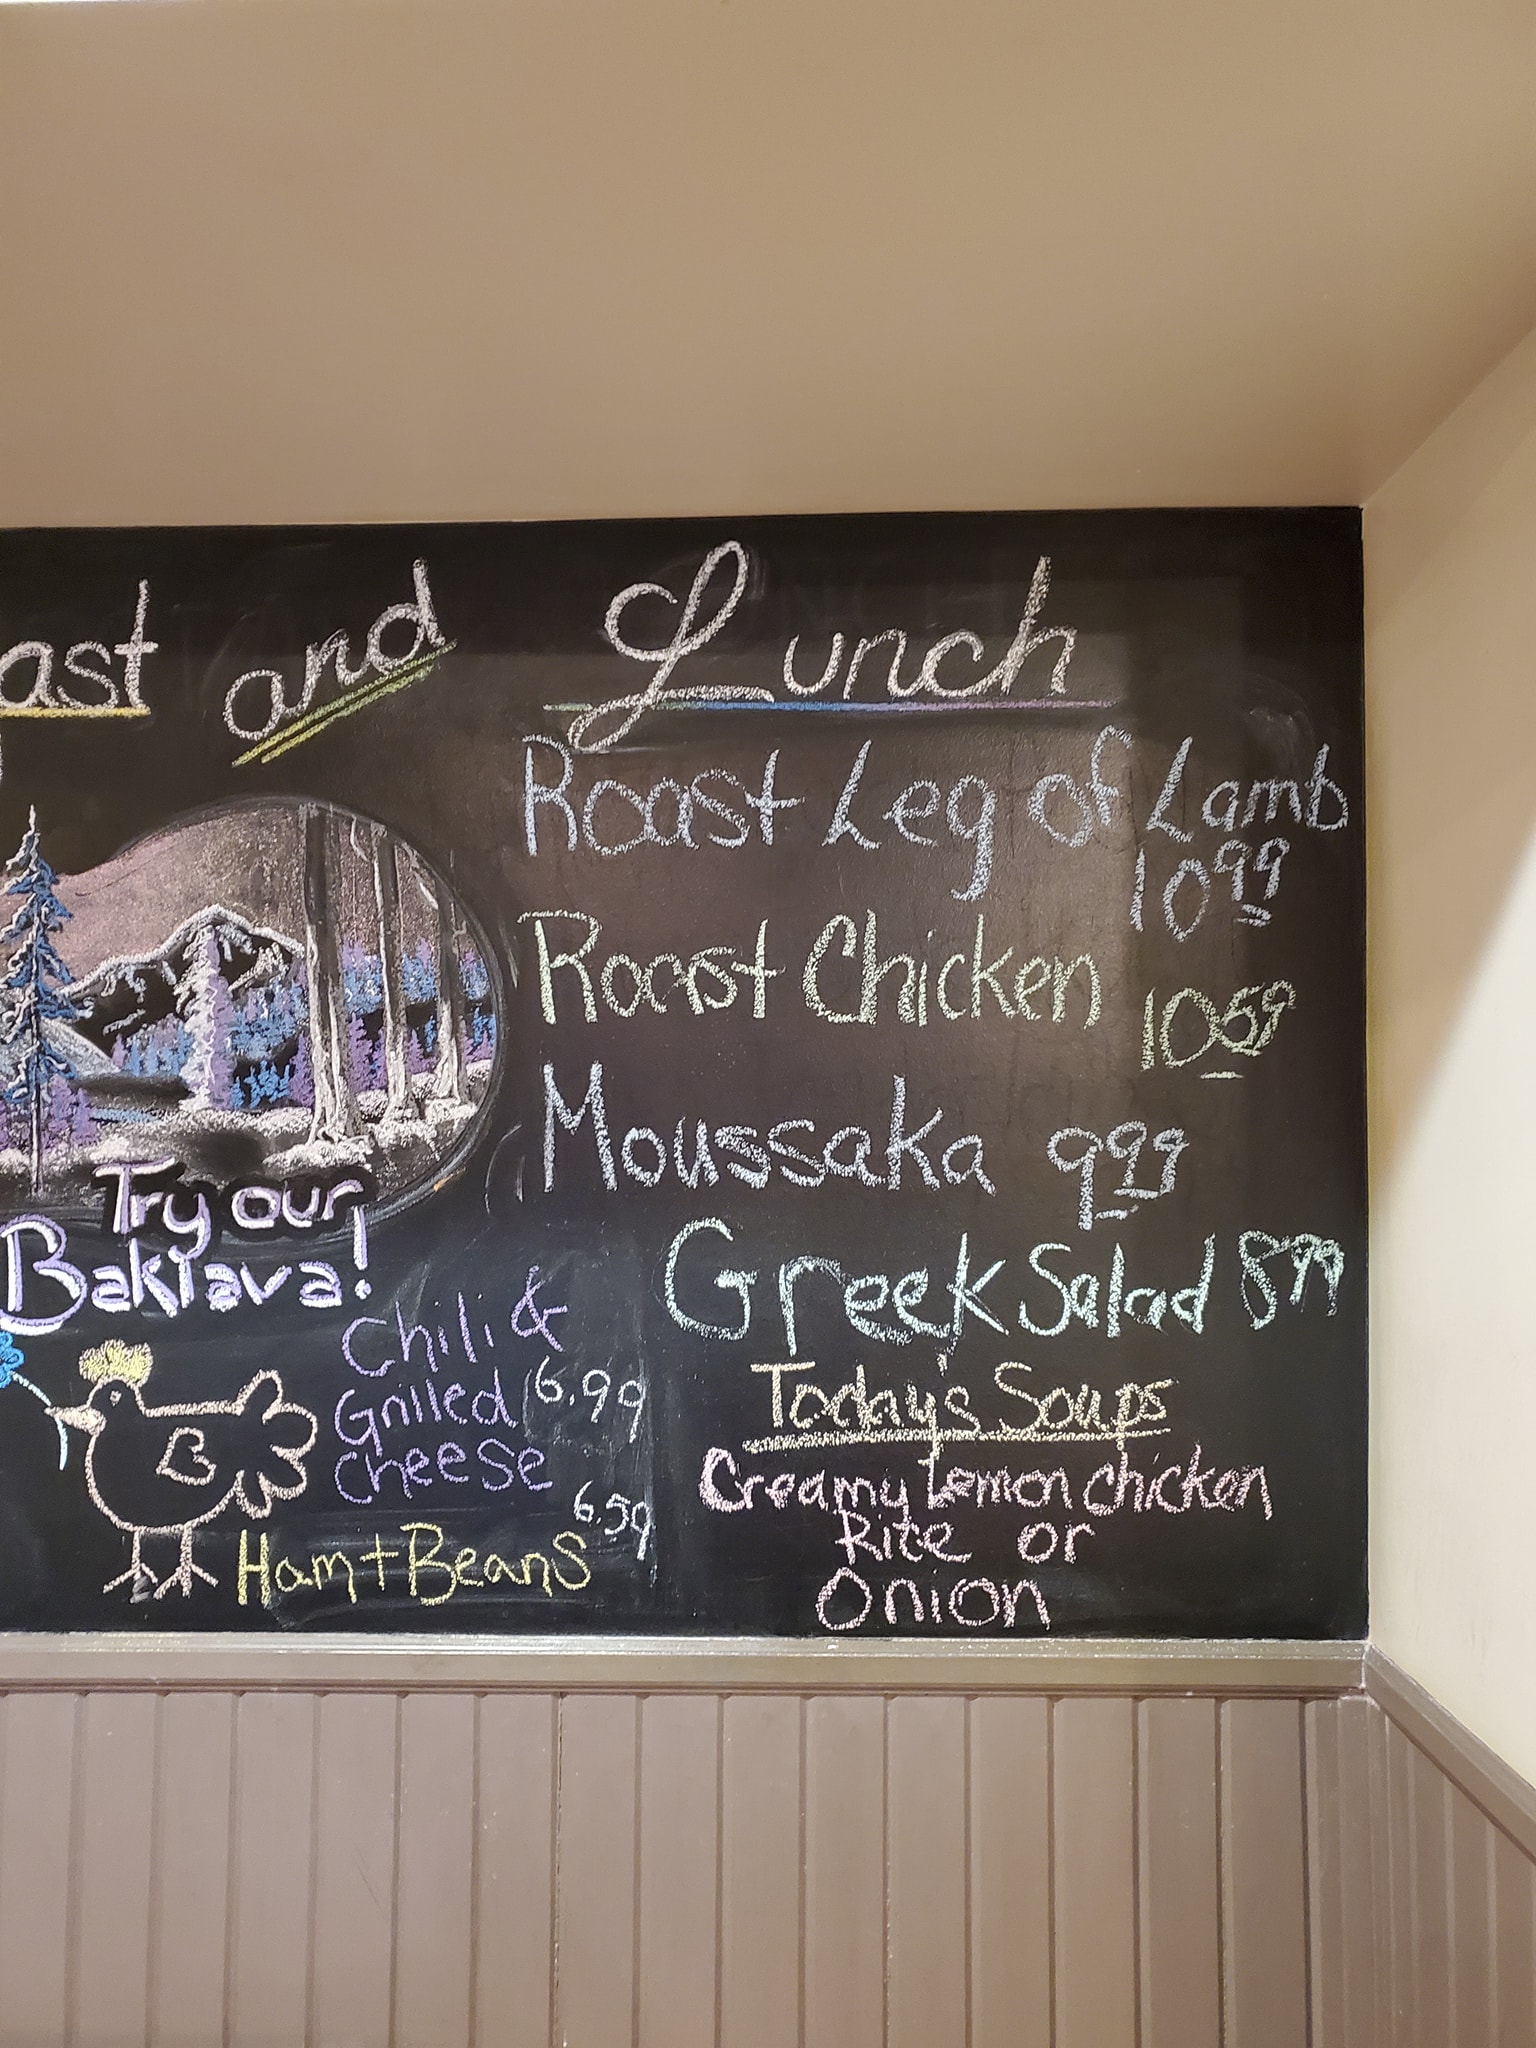 ast and Lunch
Roast Leg of Lamb
10.99
Roast Chicken
10.59
Moussaka 9.99
Greek Salad 8.99
Try our
Baklava!
Chili &
Grilled 6.99
cheese
6.59
Ham + Beans
Today's Soups
Creamy Lemon chicken
Rice or
Onion